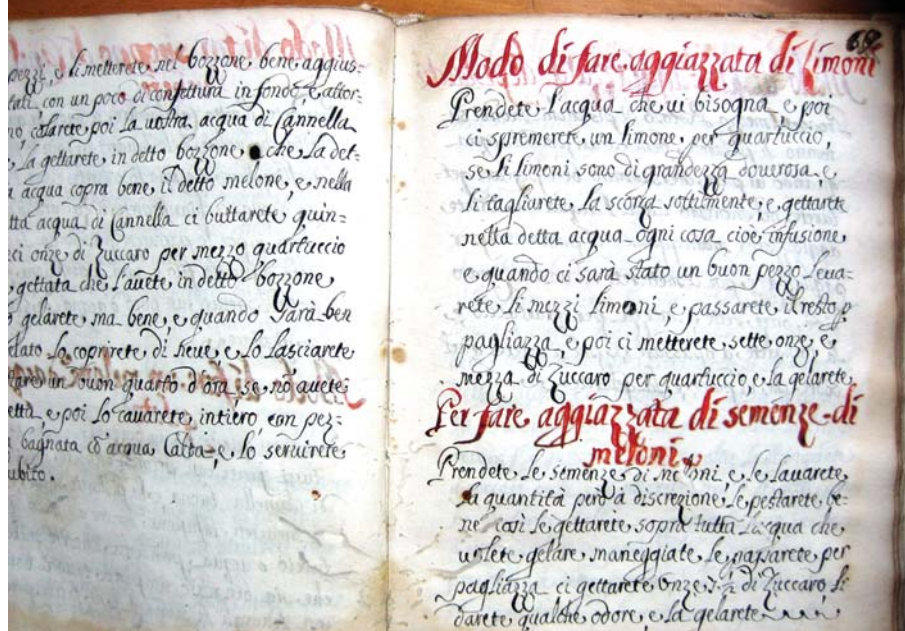 pezzi, e li metterete nel bozzone bene aggius=
tati, con un poco di confettura in fondo, e attor=
no, calarete poi la vostra acqua di Cannella
e la gettarete in detto bozzone che la det=
a acqua copra bene il detto melone, e nella
tta acqua di Cannella ci buttarete quin=
ci onze di Zuccaro per mezzo quartuccio
gettata che l'avete in detto bozzone
gelarete ma bene, e quando sarà ben
elato lo coprirete di neve, e lo lasciarete
tare un buon quarto d'ora, se no avete
etta e poi lo cavarete intiero, con pez=
a bagnata co acqua Calta e lo servirete
ubito.
68
Modo di fare aggiazzata di limoni
Prendete l'acqua che vi bisogna e poi
ci spremerete un limone per quartuccio,
se li limoni sono di grandezza doverosa, e
li tagliarete la scorza sottilmente, e gettarete
nella detta acqua ogni cosa cioè infusione,
e quando ci sarà stato un buon pezzo leva=
rete li mezzi limoni, e passarete il resto p
pagliazza, e poi ci metterete sette onze, e
mezza di Zuccaro per quartuccio, e la gelarete
Per fare aggiazzata di semenze di
meloni.
Prendete le semenze di meloni, e le lavarete,
la quantità però à discrezione, le pestarete be=
ne così le gettarete sopra tutta l'acqua che
volete gelare, maneggiate le passarete per
pagliazza ci gettarete onze 7½ di Zuccaro li
darete qualche odore, e la gelarete